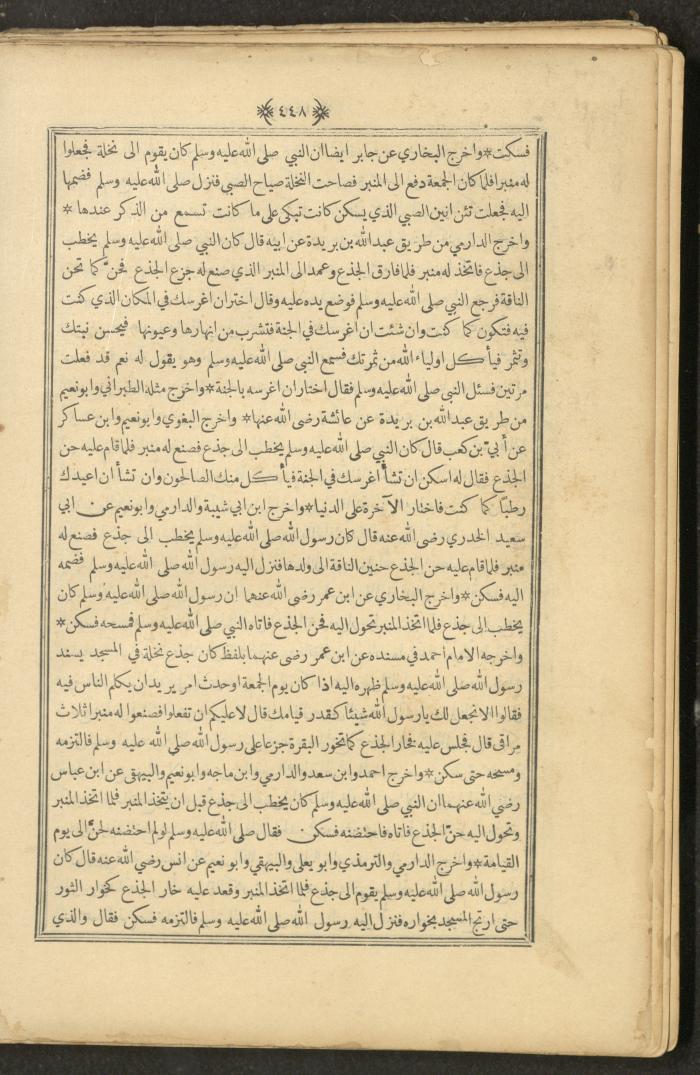 ﴿٤٤٨﴾
فسكت * واخرج البخاري عن جابر ايضا ان النبي صلى الله عليه وسلم كان يقوم الى نخلة فجعلوا
له منبرا فلما كان الجمعة دفع الى المنبر فصاحت النخلة صياح الصبي فنزل صلى الله عليه وسلم فضمها
اليه فجعلت تئن انين الصبي الذي يسكن كانت تبكي على ما كانت تسمع من الذكر عندها *
واخرج الدارمي من طريق عبد الله بن بريدة عن ابيه قال كان النبي صلى الله عليه وسلم يخطب
الى جذع فاتخذ له منبر فلما فارق الجذع وعمد الى المنبر الذي صنع له جزع الجذع فحنَّ كما تحن
الناقة فرجع النبي صلى الله عليه وسلم فوضع يده عليه وقال اختر ان اغرسك في المكان الذي كنت
فيه فتكون كما كنت وان شئت ان اغرسك في الجنة فتشرب من انهارها وعيونها فيحسن نبتك
وتثمر فيأكل اولياء الله من ثمرتك فسمع النبي صلى الله عليه وسلم وهو يقول له نعم قد فعلت
مرتين فسئل النبي صلى الله عليه وسلم فقال اختار ان اغرسه بالجنة * واخرج مثله الطبراني وابو نعيم
من طريق عبد الله بن بريدة عن عائشة رضى الله عنها * واخرج البغوي وابو نعيم وابن عساكر
عن أبيّ بن كعب قال كان النبي صلى الله عليه وسلم يخطب الى جذع فصنع له منبر فلما قام عليه حن
الجذع فقال له اسكن ان تشأ اغرسك في الجنة فيأكل منك الصالحون وان تشأ ان اعيدك
رطبًا كما كنت فاختار الآخرة على الدنيا * واخرج ابن ابي شيبة والدارمي وابو نعيم عن ابي
سعيد الخدري رضى الله عنه قال كان رسول الله صلى الله عليه وسلم يخطب الى جذع فصنع له
منبر فلما قام عليه حن الجذع حنين الناقة الى ولدها فنزل اليه رسول الله صلى الله عليه وسلم فضمه
اليه فسكن * واخرج البخاري عن ابن عمر رضى الله عنهما ان رسول الله صلى الله عليه وسلم كان
يخطب الى جذع فلما اتخذ المنبر تحول اليه فحن الجذع فاتاه النبي صلى الله عليه وسلم فمسحه فسكن *
واخرجه الامام احمد في مسنده عن ابن عمر رضى عنهما بلفظ كان جذع نخلة في المسجد يسند
رسول الله صلى الله عليه وسلم ظهره اليه اذا كان يوم الجمعة او حدث امر يريد ان يكلم الناس فيه
فقالوا الا نجعل لك يا رسول الله شيئا كقدر قيامك قال لا عليكم ان تفعلوا فصنعوا له منبرا ثلاث
مراقى قال فجلس عليه فخار الجذع كما تخور البقرة جزعا على رسول الله صلى الله عليه وسلم فالتزمه
ومسحه حتى سكن * واخرج احمد وابن سعد والدارمي وابن ماجه وابو نعيم والبيهقي عن ابن عباس
رضي الله عنهما ان النبي صلى الله عليه وسلم كان يخطب الى جذع قبل ان يتخذ المنبر فلما اتخذ المنبر
وتحول اليه حنّ الجذع فاتاه فاحتضنه فسكن فقال صلى الله عليه وسلم لو لم احتضنه لحنَّ الى يوم
القيامة * واخرج الدارمي والترمذي وابو يعلى والبيهقي وابو نعيم عن انس رضي الله عنه قال كان
رسول الله صلى الله عليه وسلم يقوم الى جذع فلما اتخذ المنبر وقعد عليه خار الجذع كخوار الثور
حتى ارتج المسجد بخواره فنزل اليه رسول الله صلى الله عليه وسلم فالتزمه فسكن فقال والذي